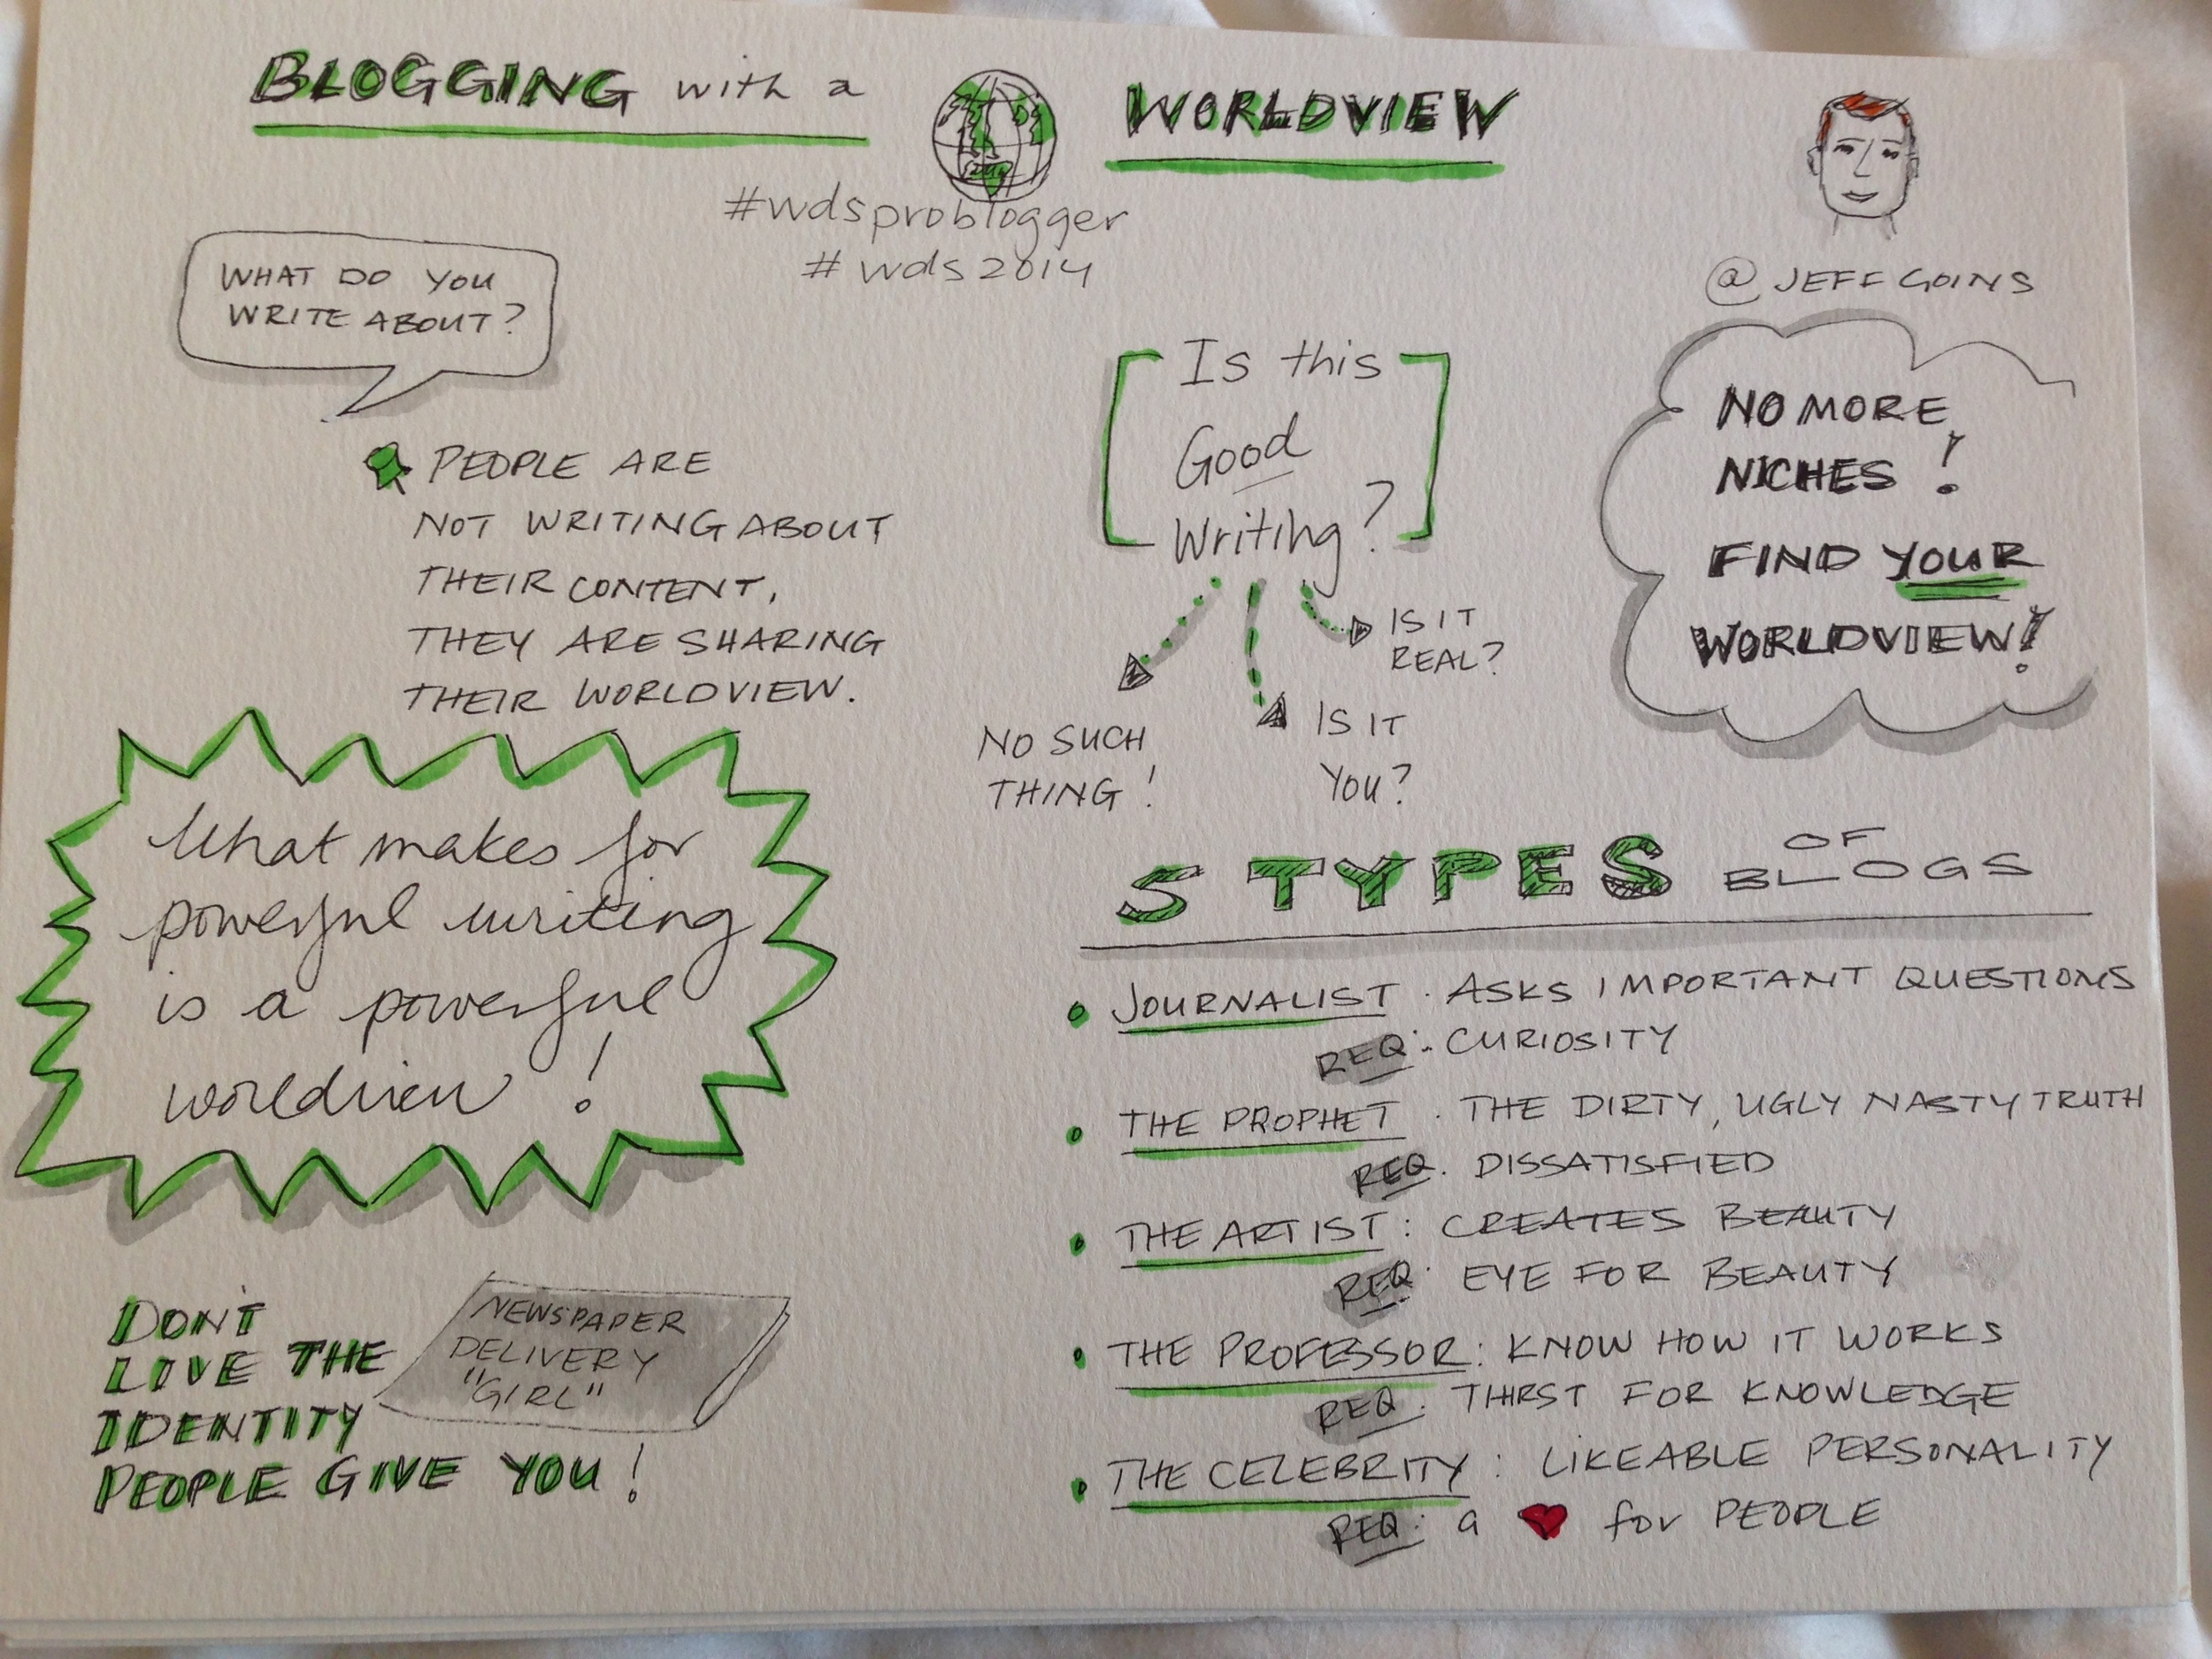 BLOGGING with a WORLDVIEW
#wdsproblogger
#wds2014
@JEFFGOINS
WHAT DO YOU
WRITE ABOUT?
PEOPLE ARE
NOT WRITING ABOUT
THEIR CONTENT,
THEY ARE SHARING
THEIR WORLDVIEW.
Is this
Good
Writing?
NO SUCH
THING!
IS IT
YOU?
IS IT
REAL?
NO MORE
NICHES!
FIND YOUR
WORLDVIEW!
What makes for
powerful writing
is a powerful
worldview!
DON'T
LIVE THE
IDENTITY
PEOPLE GIVE YOU!
NEWSPAPER
DELIVERY
"GIRL"
5 TYPES OF BLOGS
JOURNALIST. ASKS IMPORTANT QUESTIONS
REQ: CURIOSITY
THE PROPHET. THE DIRTY, UGLY NASTY TRUTH
REQ. DISSATISFIED
THE ARTIST: CREATES BEAUTY
REQ: EYE FOR BEAUTY
THE PROFESSOR: KNOW HOW IT WORKS
REQ: THIRST FOR KNOWLEDGE
THE CELEBRITY: LIKEABLE PERSONALITY
REQ: a ♥ for PEOPLE